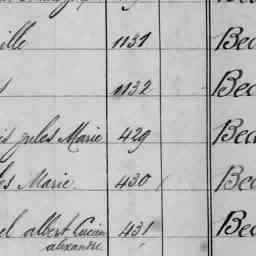 ille 1131 Bea
1132 Bea
is jules Marie 429 Bea
es Marie 430 Bea
el albert Lucien 431 Bea
alexandre